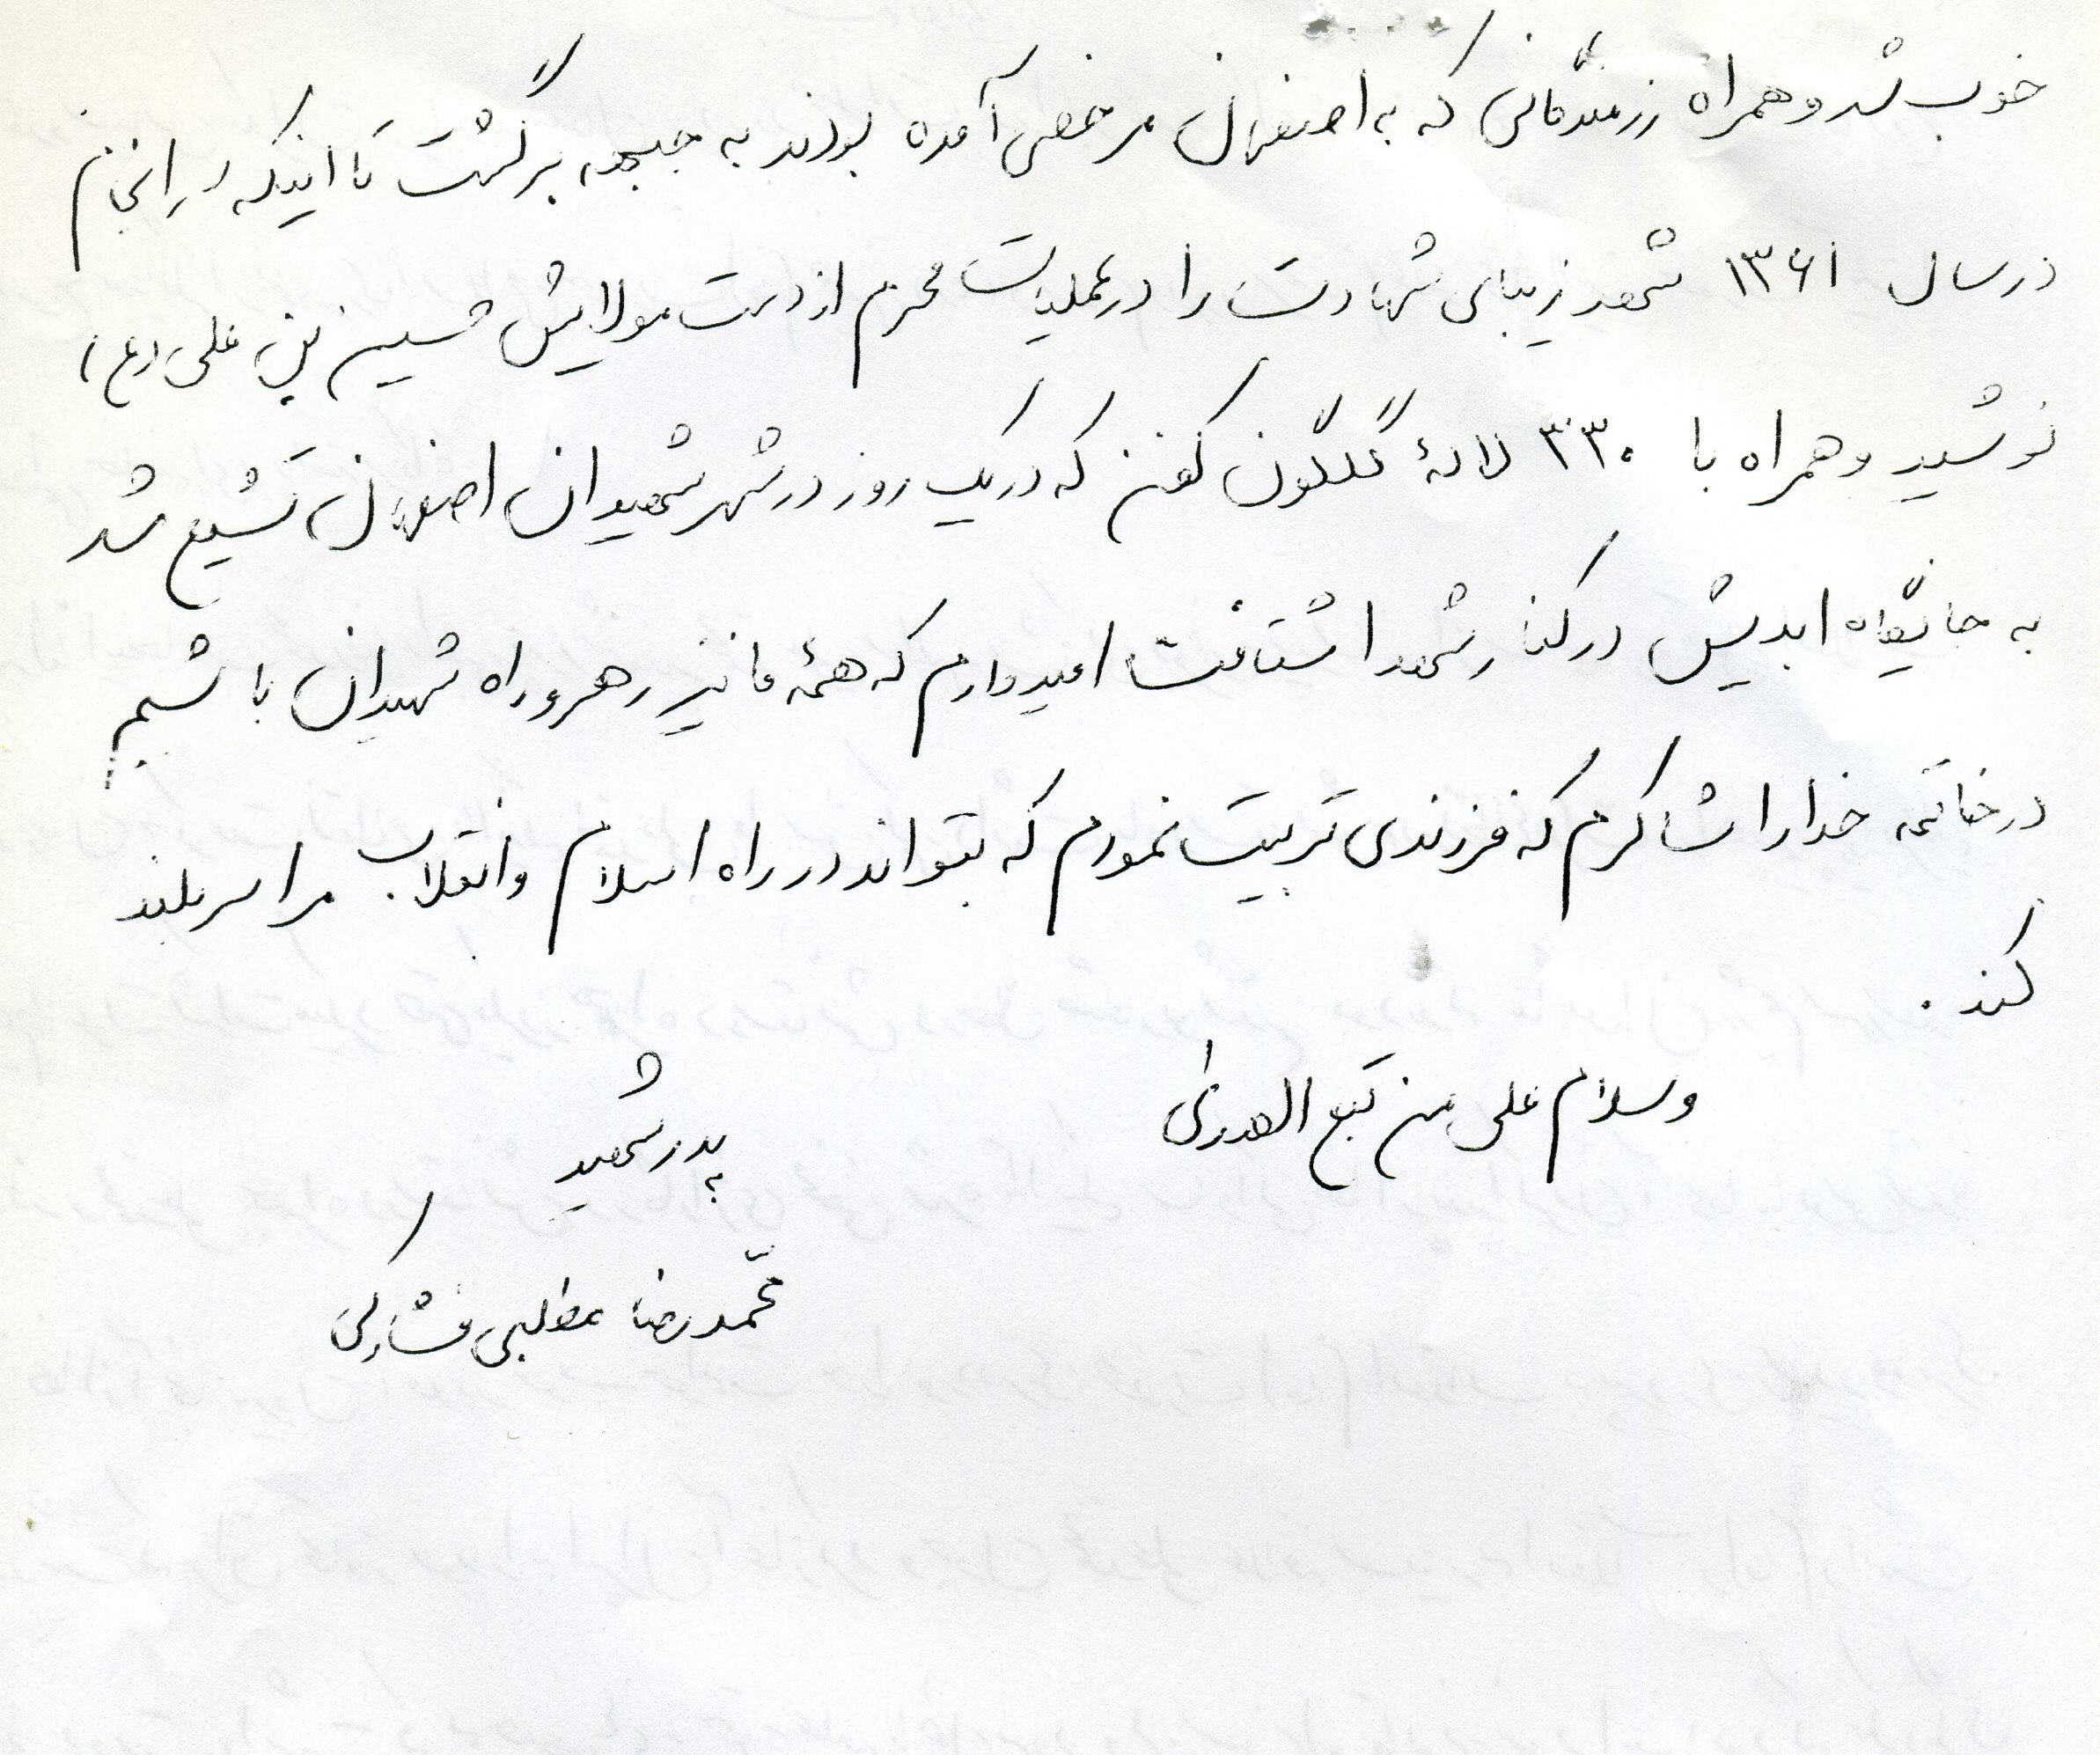 خوب شد و همراه رزمندگانی که به اصفهان مرخصی آمده بودند به جبهه برگشت تا اینکه سرانجام
در سال ۱۳۶۱ شهد زیبای شهادت را در عملیات محرم از دست مولایش حسین بن علی (ع)
نوشید و همراه با ۳۳۰ لالهٔ گلگون کفن که در یک روز در شهر شهیدان اصفهان تشییع شد
به جایگاه ابدیش در کنار شهدا شتافت امیدوارم که همهٔ ما نیز رهرو راه شهیدان باشیم
در خاتمه خدا را شاکرم که فرزندی تربیت نمودم که بتواند در راه اسلام و انقلاب مرا سربلند
کند .
وسلام علی من تبع الهدی
پدر شهید
محمدرضا مطلبی فشارکی